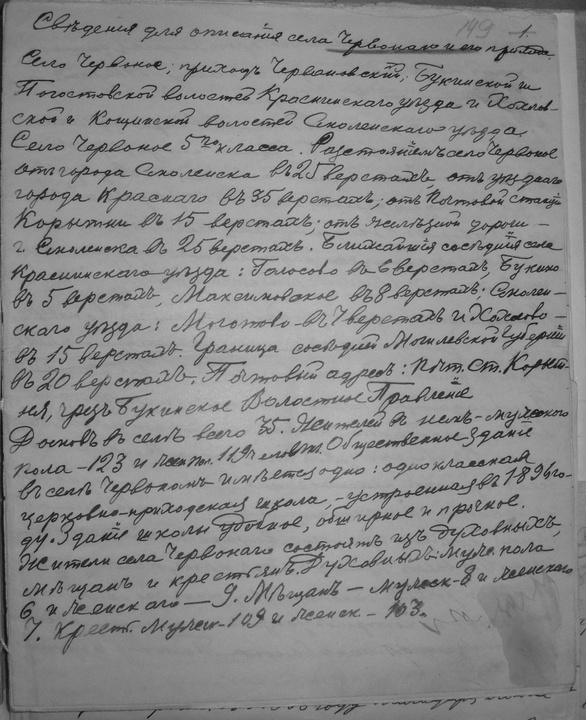 149 1.
Свѣдения для описания села Червонаго и его прихода.
Село Червоное; приходъ Червоновский; Букинской и
Погостовской волостей Краснинскаго уѣзда и Хохлов-
ской и Кощинской волостей Смоленскаго уѣзда.
Село Червоное 5го класса. Разстояниемъ село Червоное
отъ города Смоленска въ 25 верстахъ, отъ уѣзднаго
города Краснаго въ 35 верстахъ; отъ почтовой станции
Корытни въ 15 верстахъ; отъ желѣзной дороги –
г. Смоленска въ 25 верстахъ. Ближайшия сосѣдния села
Краснинскаго уѣзда: Голосово въ 6 верстахъ, Букино
въ 5 верстахъ, Максимовское въ 8 верстахъ; Смолен-
скаго уѣзда: Моготово – въ 7 верстахъ и Хохлово –
въ 15 верстахъ. Граница сосѣдней Могилевской губернии
въ 20 верстахъ. Почтовый адресъ: Почт. ст. Корыт-
ня, чрезъ Букинское Волостное Правление
Домовъ въ селѣ всего 35. Жителей въ немъ – мужского
пола – 123 и жен. пол. 119 человѣк. Общественное здание
въ селѣ Червономъ имѣется одно: одноклассная
церковно-приходская школа, – устроенная въ 1896 го-
ду. Здание школы удобное, обширное и прочное.
Жители села Червонаго состоятъ изъ духовныхъ,
мѣщанъ и крестьянъ. Духовныхъ: муж. пола
6 и женскаго – 9. Мѣщанъ – мужск. 8 и женскаго
7. Крест. мужск – 109 и женск – 103.